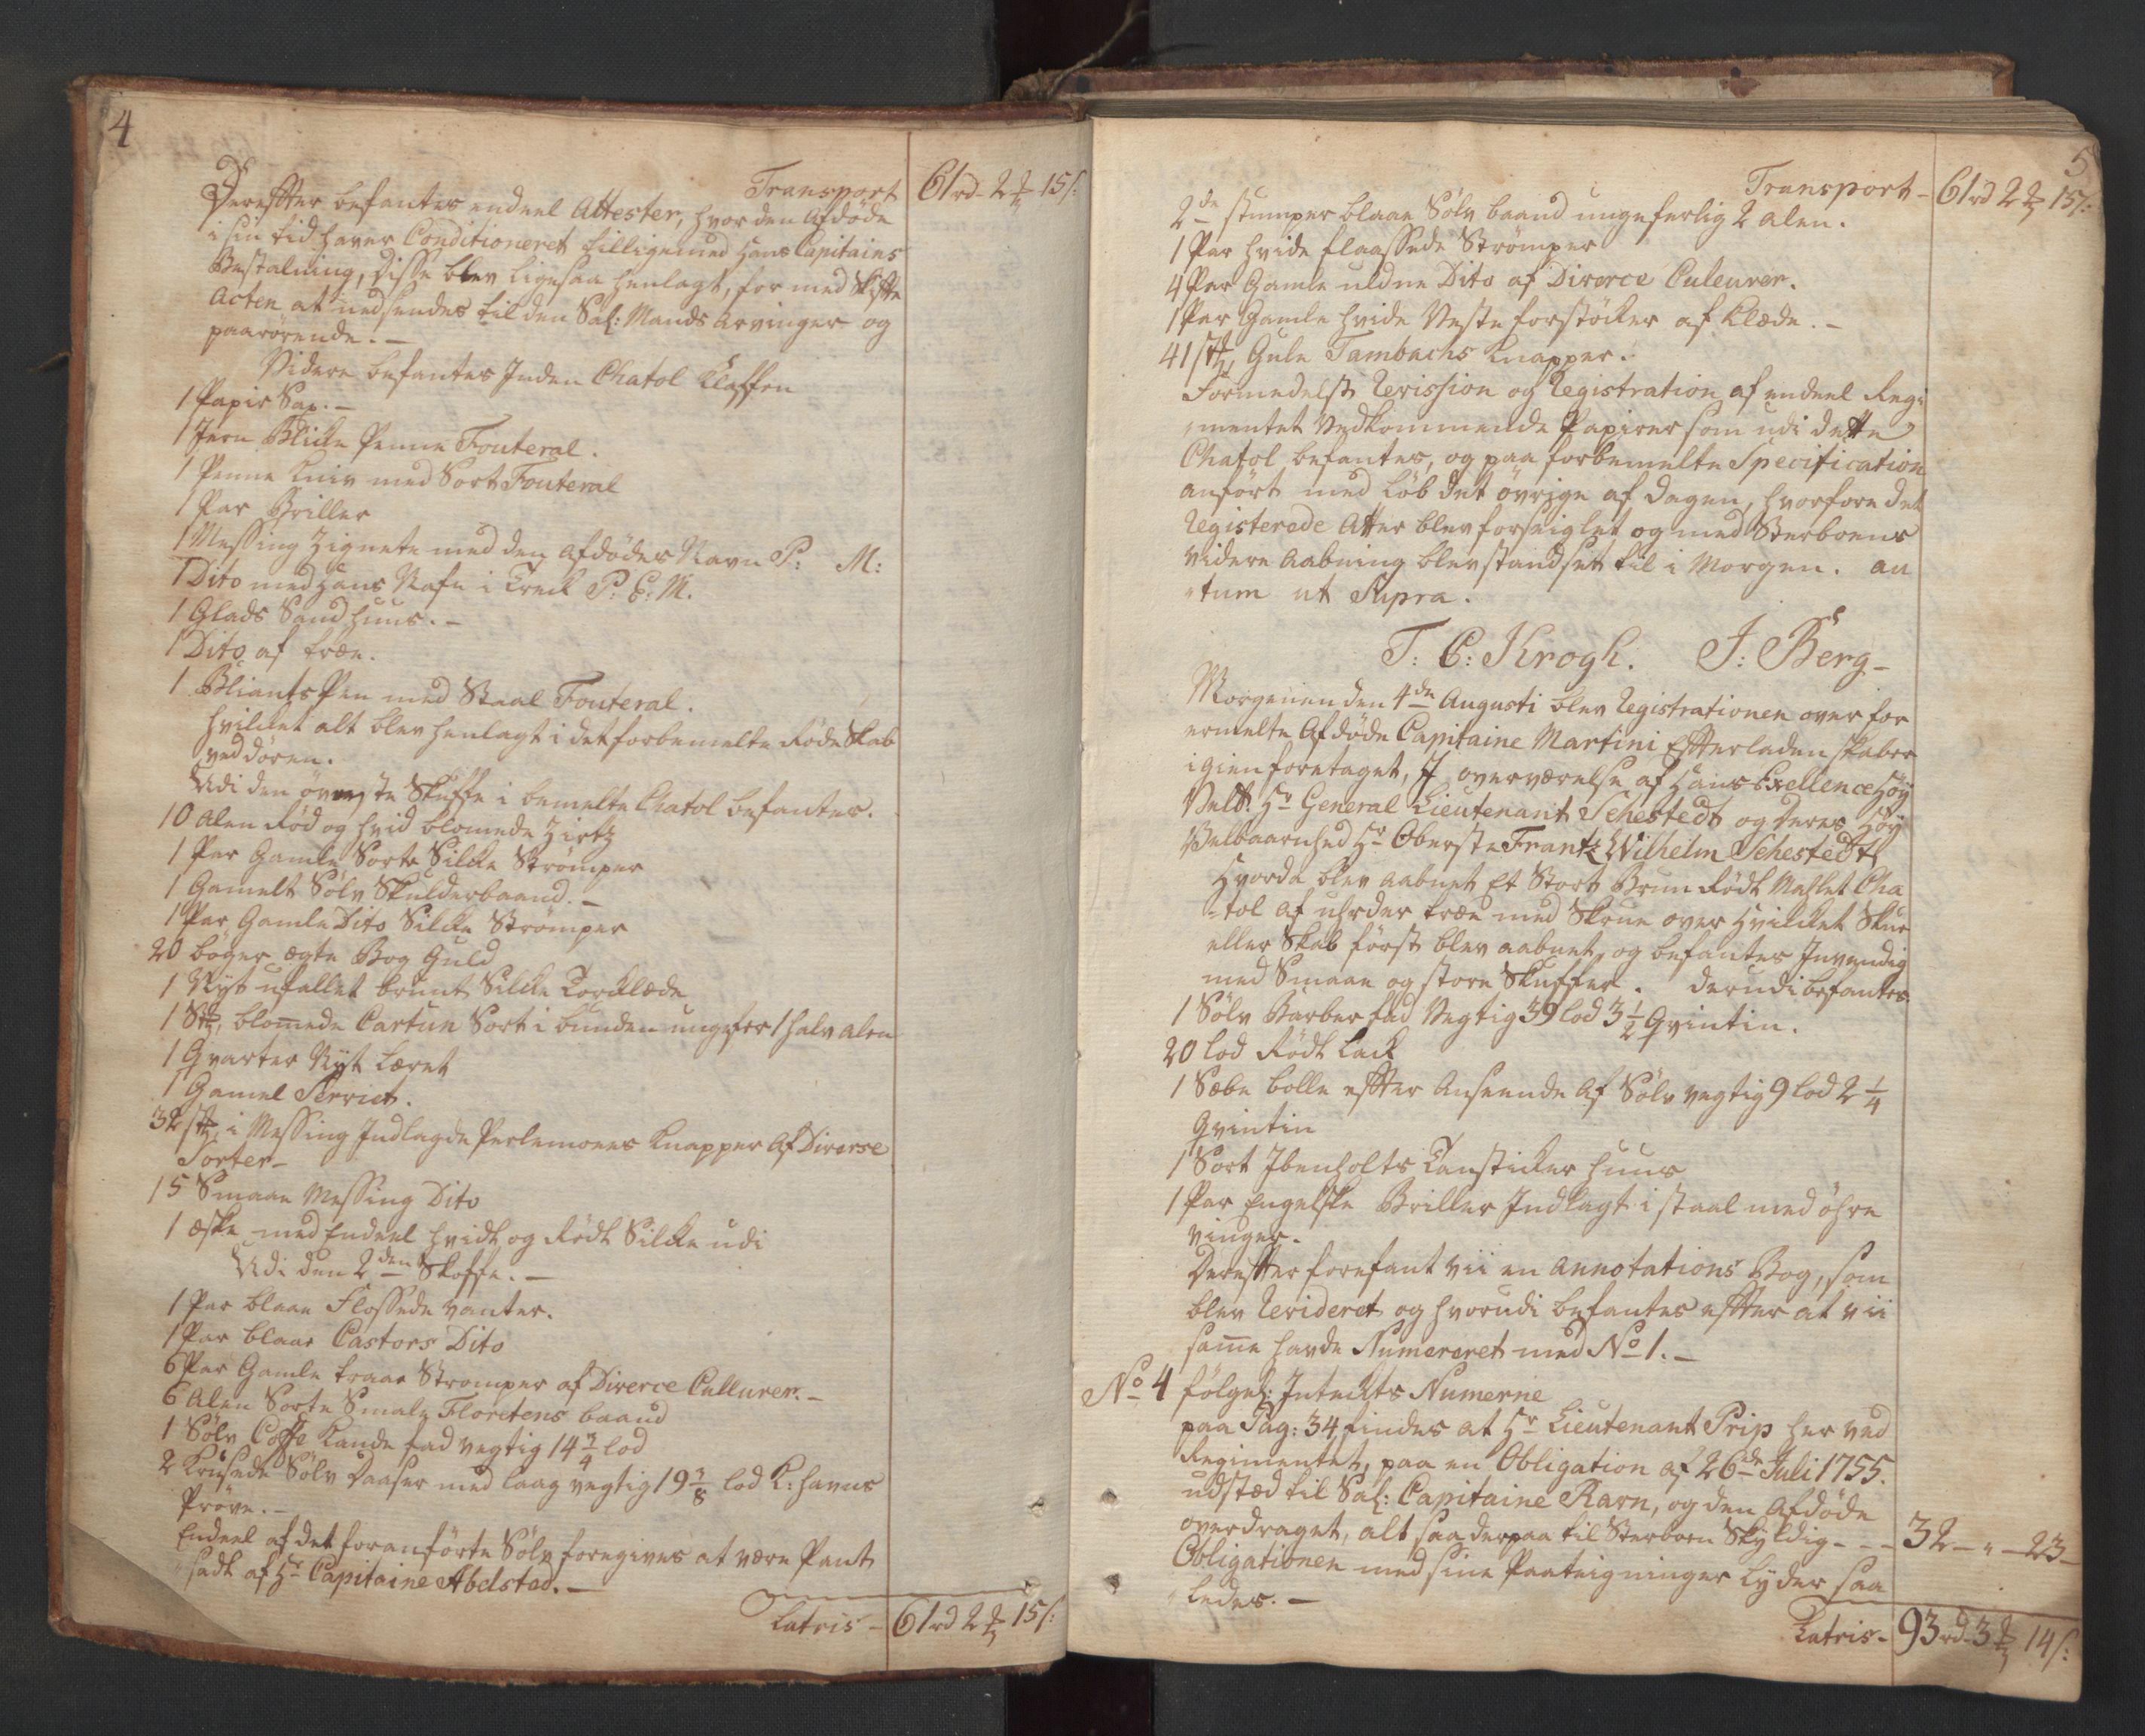 4
Transport 61 rd 2 ℔ 15 s:
Derefter befantes endeel Attester, hvor den Afdøde
i sin tid haver Conditioneret tilligemed hans Capitains
Bestalning, disse blev ligesaa henlagt, for med Skifte
Acten at nedsendes til den Sal: Mands Arvinger og
paarørende. –
Videre befantes Inden Chatol Klaffen
1 Papir Sax. –
1 Jern Blicke Penne Fouteral.
1 Penne Kniv med Sort Fouteral
1 Par Briller
1 Messing Zignete med den Afdødes Navn P: M:
1 Dito med hans Nafn i Treck P: E: M.
1 Glads Sandhuus. –
1 Dito af træe.
1 Bliants Pen med Staal Fouteral.
hvilcket alt blev henlagt i det forbemelte Røde Skab
ved døren.
Udi den øverste Skuffe i bemelte Chatol befantes.
10 Alen Rød og hvid blomede Zirtz
1 Par Gamle Sorte Silke Strømper
1 Gamelt Sølv Skulderbaand. –
1 Par Gamle Dito Silke Strømper
20 bøger ægte Bog Guld
1 Nyt ufallet brunt Silke Torklæde
1 St: blomede Cartun Sort i bunden ungefer 1 halv Alen
1 Qvarter Nyt Læret
1 Gamel Serviet.
32 st: i Messing Indlagde Perlemoers Knapper Af Diverse
Sorter –
15 Smaae Messing Dito
1 æske med Endeel hvidt og Rødt Silke udi
Udi den 2den Skoffe. –
1 Par blaae Flossede vanter.
1 Par blaae Castors Dito
6 Par Gamle traae Strømper af Diverce Cullurer. –
6 Alen Sorte Smale Floretens baand
1 Sølv Coffe Kande fad vegtig 14 3/4 lod
2 Krusede Sølv Daaser med laag vegtig 19 3/8 lod K:havns
Prøve. –
Endeel af det foranførte Sølv foregives at være Pant
sadt af Hr Capitaine Abelsted. –
Latris – 61 rd 2 ℔ 15 s:
5
Transport – 61 rd 2 ℔ 15 s:
2de stumper blaae Sølv baand ungeferlig 2 Alen.
1 Par hvide flaassede Strømper
4 Par Gamle uldne Dito af Diverce Culeurer.
1 Par Gamle hvide Veste forstöcker af Klæde. –
41 st: Gule Tambachs Knapper.
Formedelst Revission og Registration af endeel Regi
mentet Vedkommende Papirer som udi dette
Chatol befantes, og paa forbemelte Specification
anført med løb det øvrige af dagen, hvorfore det
Registerede Atter blev forseiglet og med Sterboens
videre Aabning blev standset til i Morgen. Au
tum ut Supra.
T: C: Krogh. J: Berg –
Morgenen den 4de Augusti blev Registrationen over for
ermelte Afdøde Capitaine Martini Efterladenskaber
igien foretaget, I overværelse af Hans Exellence Høy
Velb: Hr General Lieutenant Schestedt og deres Høy
Velbaarnhed Hr Oberste Frantz Wilhelm Schestedt
Hvorda blev Aabnet Et Stort Brun Rødt Mahlet Cha
tol Af uhrder træe med Skrue over hvilcket Skue
eller Skab først blev aabnet, og befantes Invendig
med Smaae og store Skuffer. derudi befantes
1 Sølv Barber fad Vegtig 39 lod 3 1/2 Qvintin.
20 lod Rødt Lack
1 Sæbe bolle efter Anseende Af Sølv vegtig 9 lod 2 1/4
Qvintin
1 Sort Ibenholts Tanstikker huus
1 Par Engelske Briller Indlagt i staal med öhre
vinger.
Derefter forefant vii en Annotations Bog, som
blev Revideret og hvorudi befantes efter at vii
same havde Numereret med No 1. –
No 4 følgel: Inteckts Numerne
paa Pag: 34 findes at Hr Lieutenant Prip her ved
Regimentet, paa en Obligation af 26de Juli 1755.
udsted til Sal: Capitaine Ravn, og den Afdøde
overdraget, alt saa derpaa til Sterboen Skyldig – – – 32 – " – 23 –
Obligationen med sine Paateigninger lyder saa
ledes. –
Latris – 93 rd 3 ℔ 14 s: